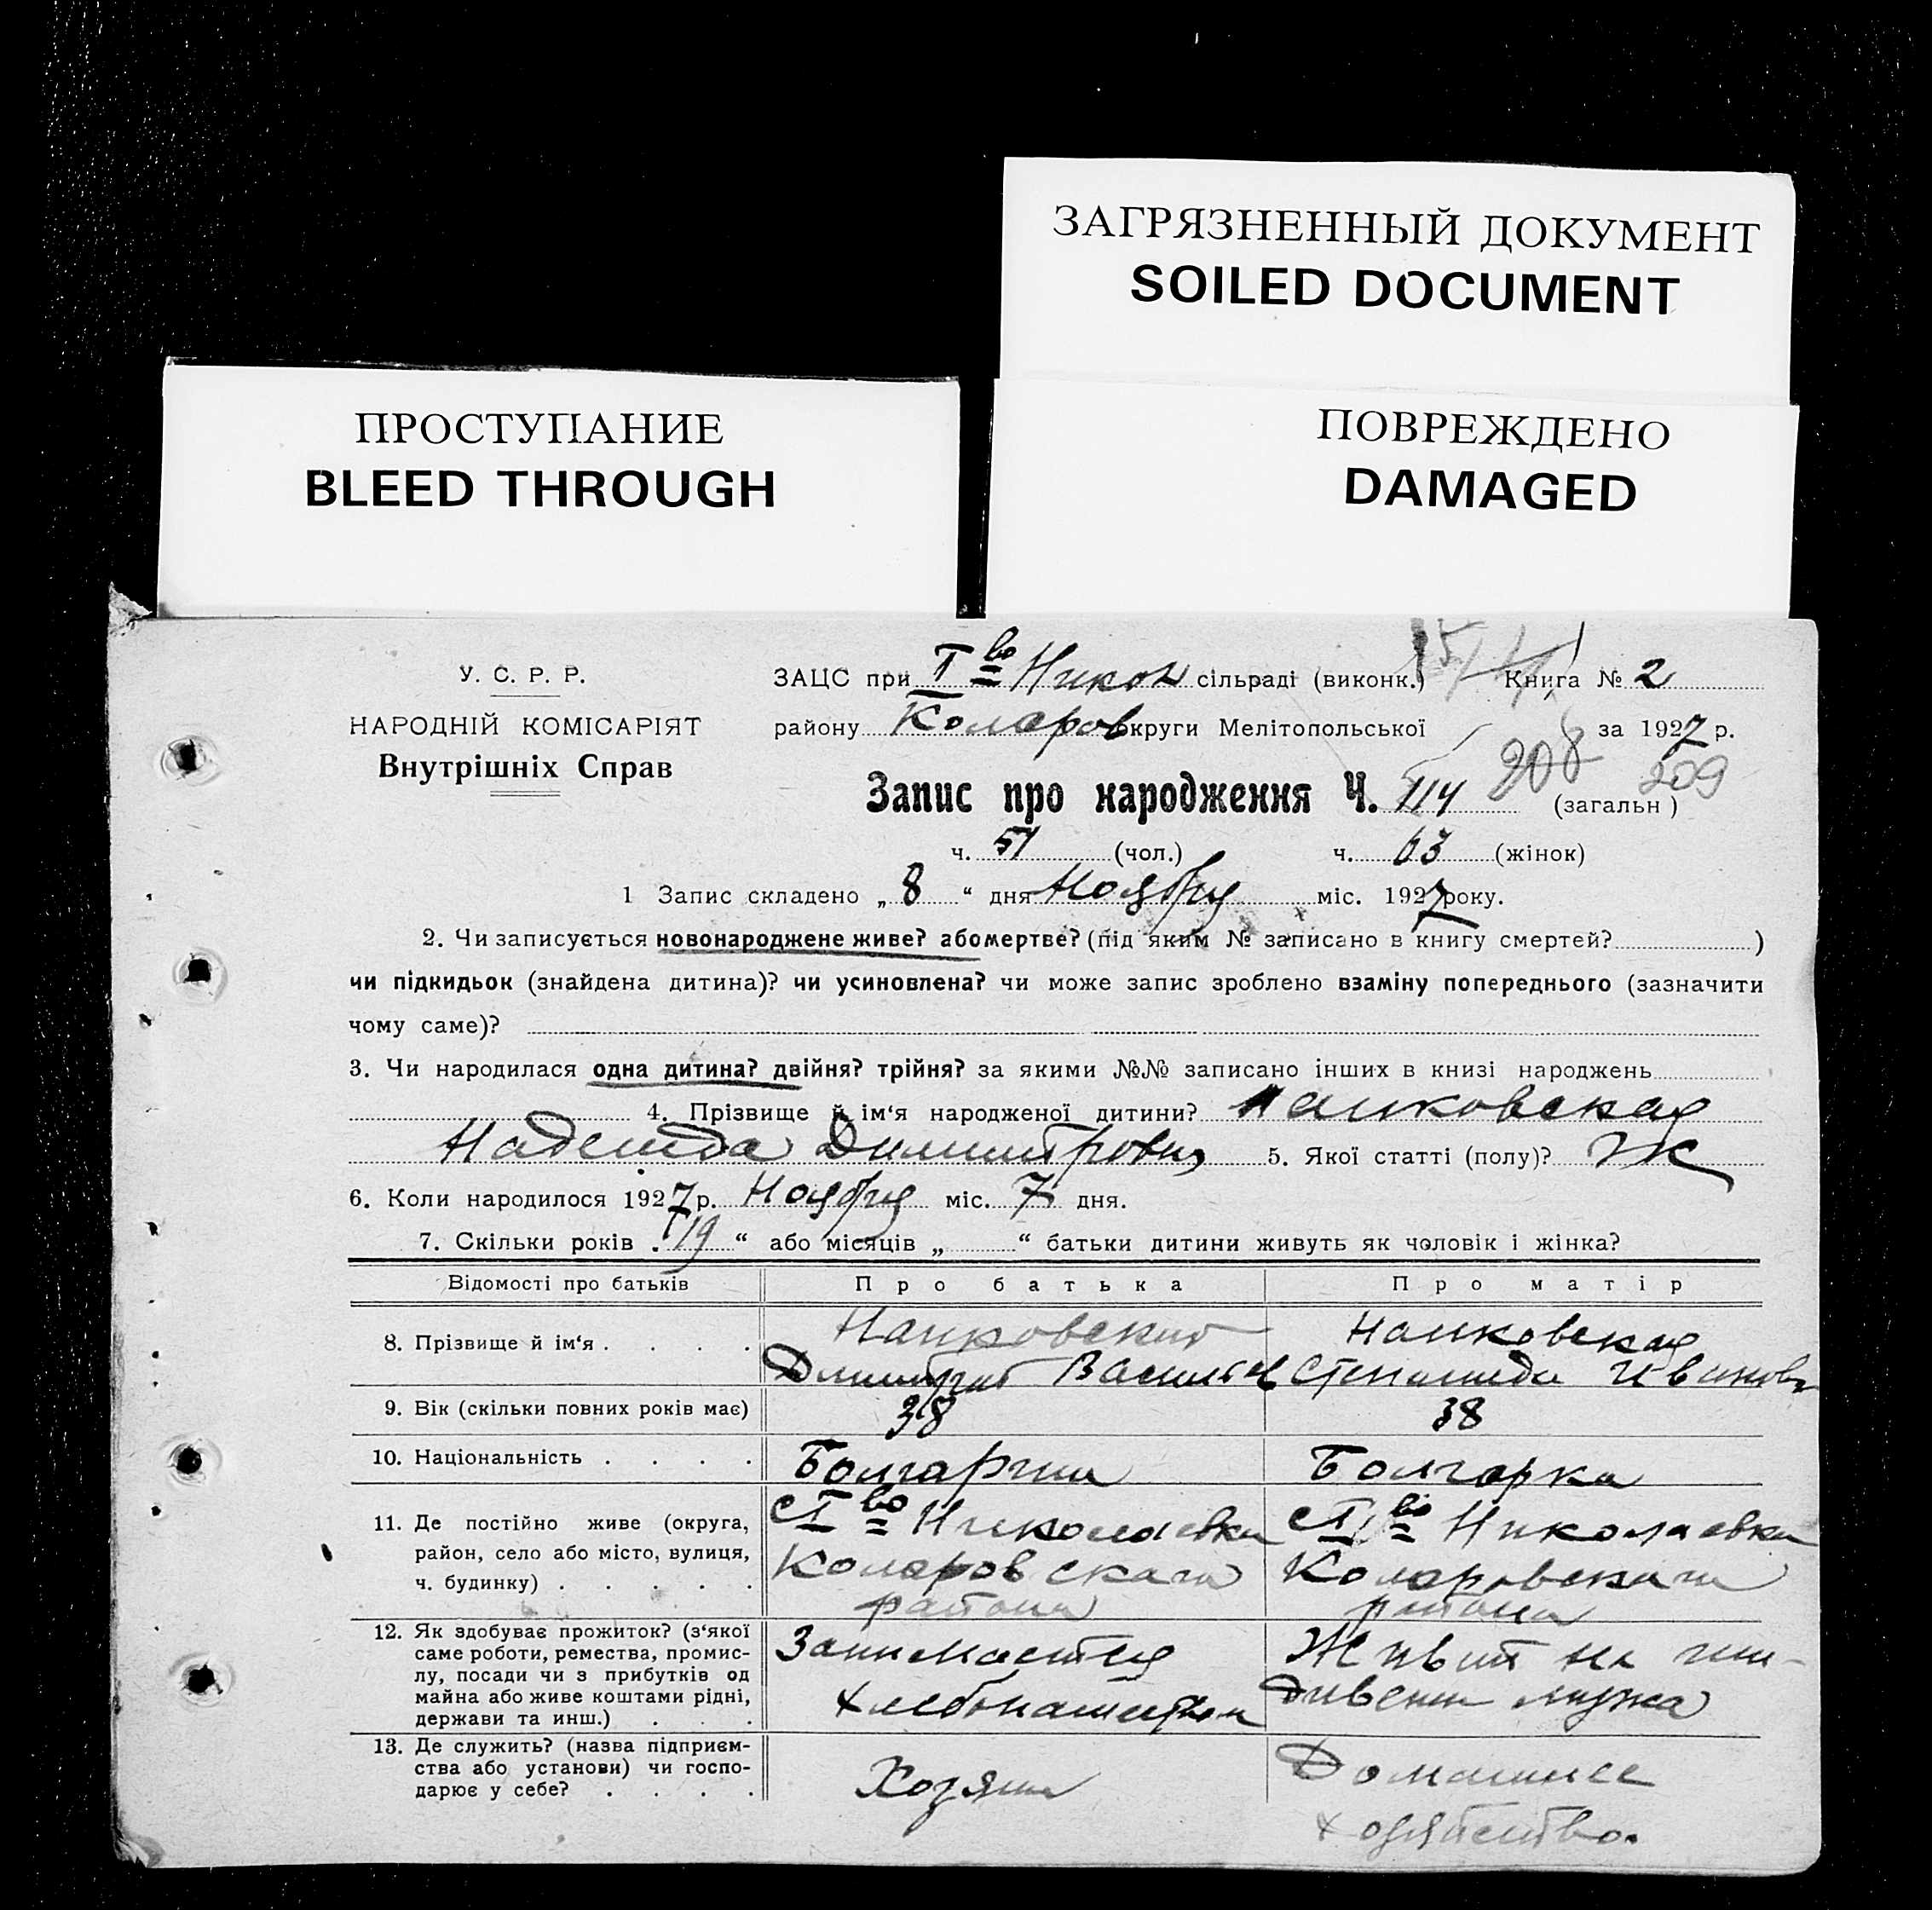 ЗАГРЯЗНЕННЫЙ ДОКУМЕНТ
SOILED DOCUMENT
ПРОСТУПАНИЕ
BLEED THROUGH
ПОВРЕЖДЕНО
DAMAGED
У. С. Р. Р.
НАРОДНІЙ КОМІСАРІЯТ
Внутрішніх Справ
ЗАЦС при I во Никол сільраді (виконк.) Книга № 2
району Коларов округи Мелітопольської за 1927 р.
208 209
Запис про народження Ч. 114 (загальн)
ч. 51 (чол.) ч. 63 (жінок)
1 Запис складено „ 8 “ дня Ноября міс. 1927 року.
2. Чи записується новонароджене живе? або мертве? (під яким № записано в книгу смертей? )
чи підкидьок (знайдена дитина)? чи усиновлена? чи може запис зроблено взаміну попереднього (зазначити
чому саме)?
3. Чи народилася одна дитина? двійня? трійня? за якими №№ записано інших в книзі народжень
4. Прізвище й ім‘я народженої дитини? Нанковская
Надежда Димитровна 5. Якої статті (полу)? Ж
6. Коли народилося 1927 р. Ноября міс. 7 дня.
7. Скільки років „ 19 “ або місяців „ “ батьки дитини живуть як чоловік і жінка?
Відомості про батьків Про батька Про матір
8. Прізвище й ім‘я . . . . Нанковский Нанковская
Димитрий Васильев Степанида Иванов
9. Вік (скільки повних років має) 38 38
10. Національність . . . . Болгарин Болгарка
11. Де постійно живе (округа, с I во Николаевки с I во Николаевки
район, село або місто, вулиця, Коларовскаго Коларовскаго
ч. будинку) . . . . . района района
12. Як здобуває прожиток? (з‘якої Занимается Живит на иж-
саме роботи, ремества, промис-
лу, посади чи з прибутків од хлебопашеством дивении мужа
майна або живе коштами рідні,
держави та инш.) . . .
13. Де служить? (назва підприєм- Домашнее
ства або установи) чи госпо- Хозяин
дарює у себе? . . . . хозяйство.